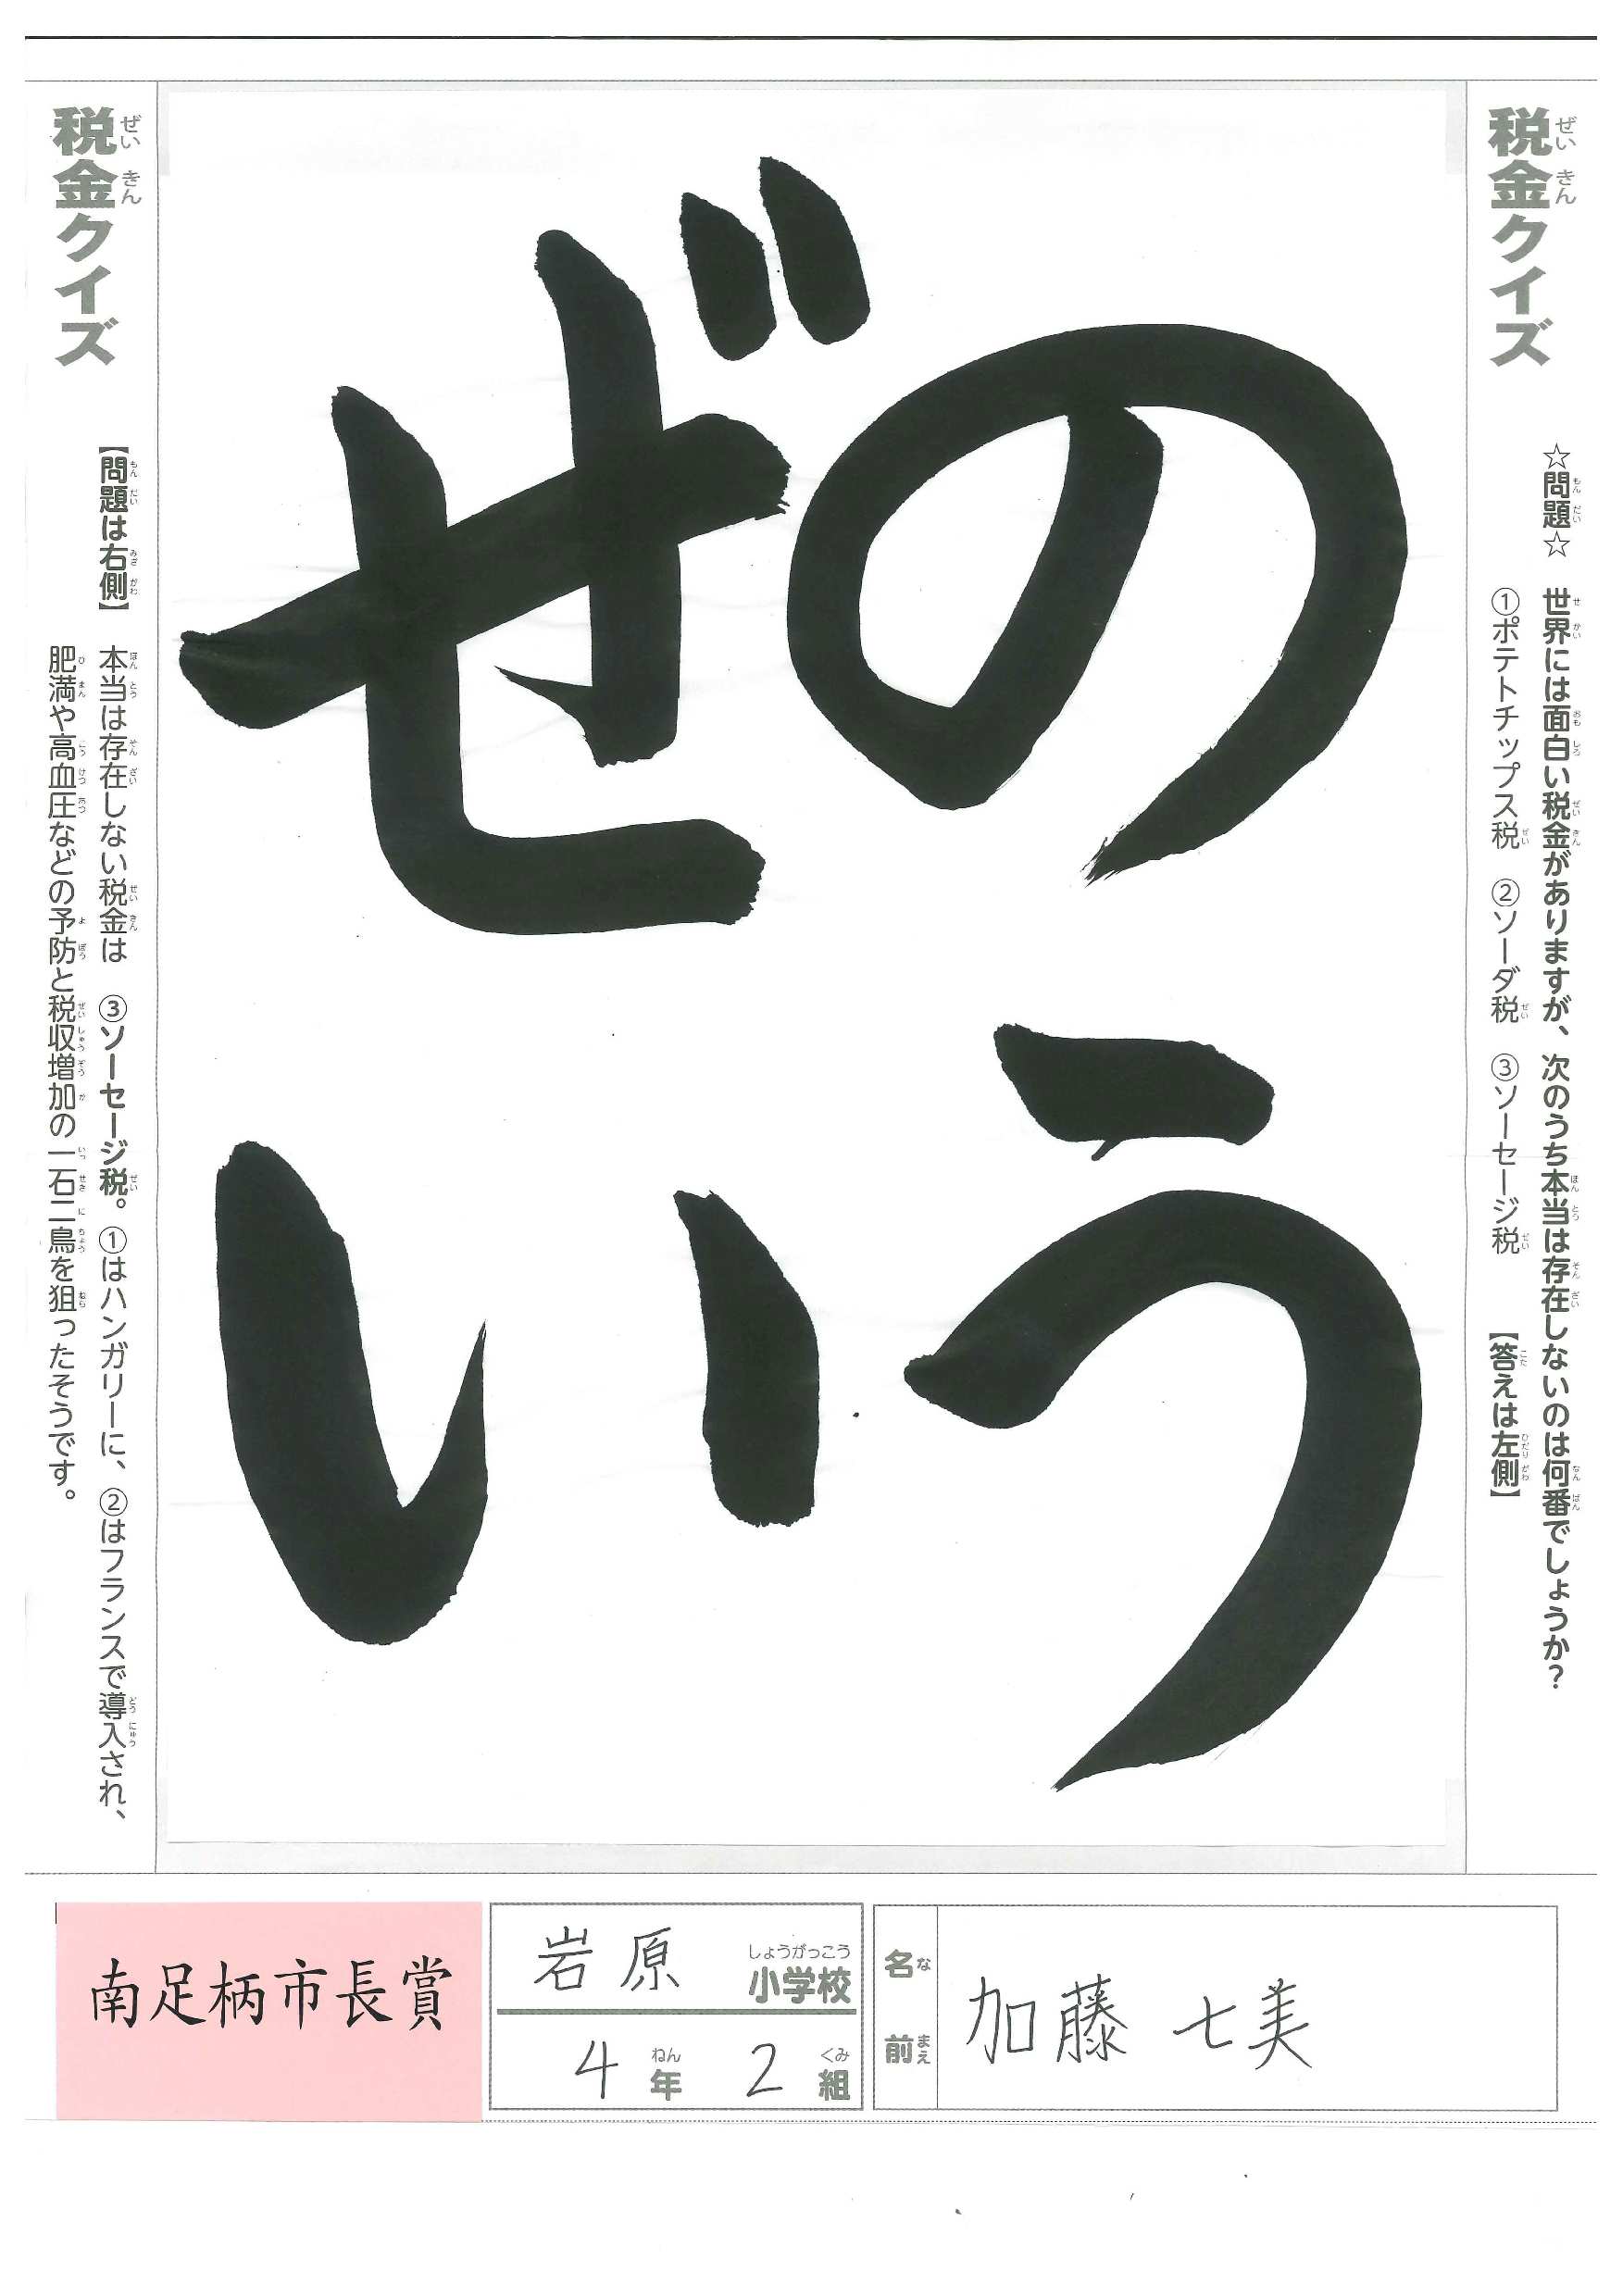 税金クイズ
☆問題☆
世界には面白い税金がありますが、次のうち本当は存在しないのは何番でしょうか？
①ポテトチップス税 ②ソーダ税 ③ソーセージ税 【答えは左側】
のう
ぜい
税金クイズ
【問題は右側】
本当は存在しない税金は ③ソーセージ税。①はハンガリーに、②はフランスで導入され、
肥満や高血圧などの予防と税収増加の一石二鳥を狙ったそうです。
南足柄市長賞
岩原 小学校
4年 2組
名前 加藤 七美